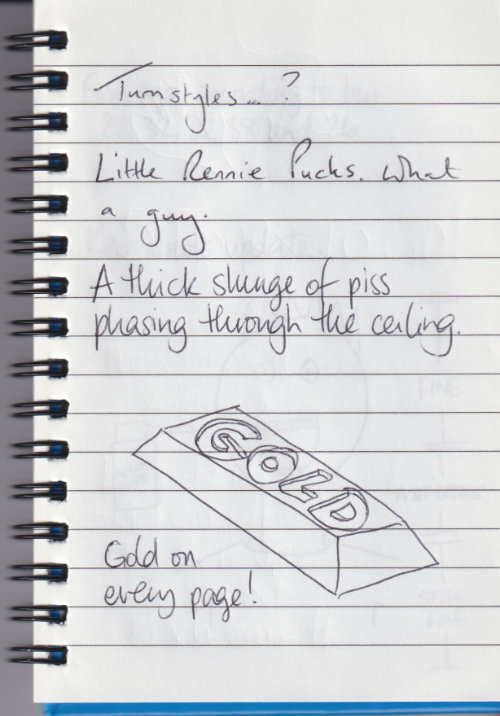 Turnstyles...?
Little Rennie Pucks. What
a guy.
A thick slunge of piss
phasing through the ceiling.
GOLD
Gold on
every page!